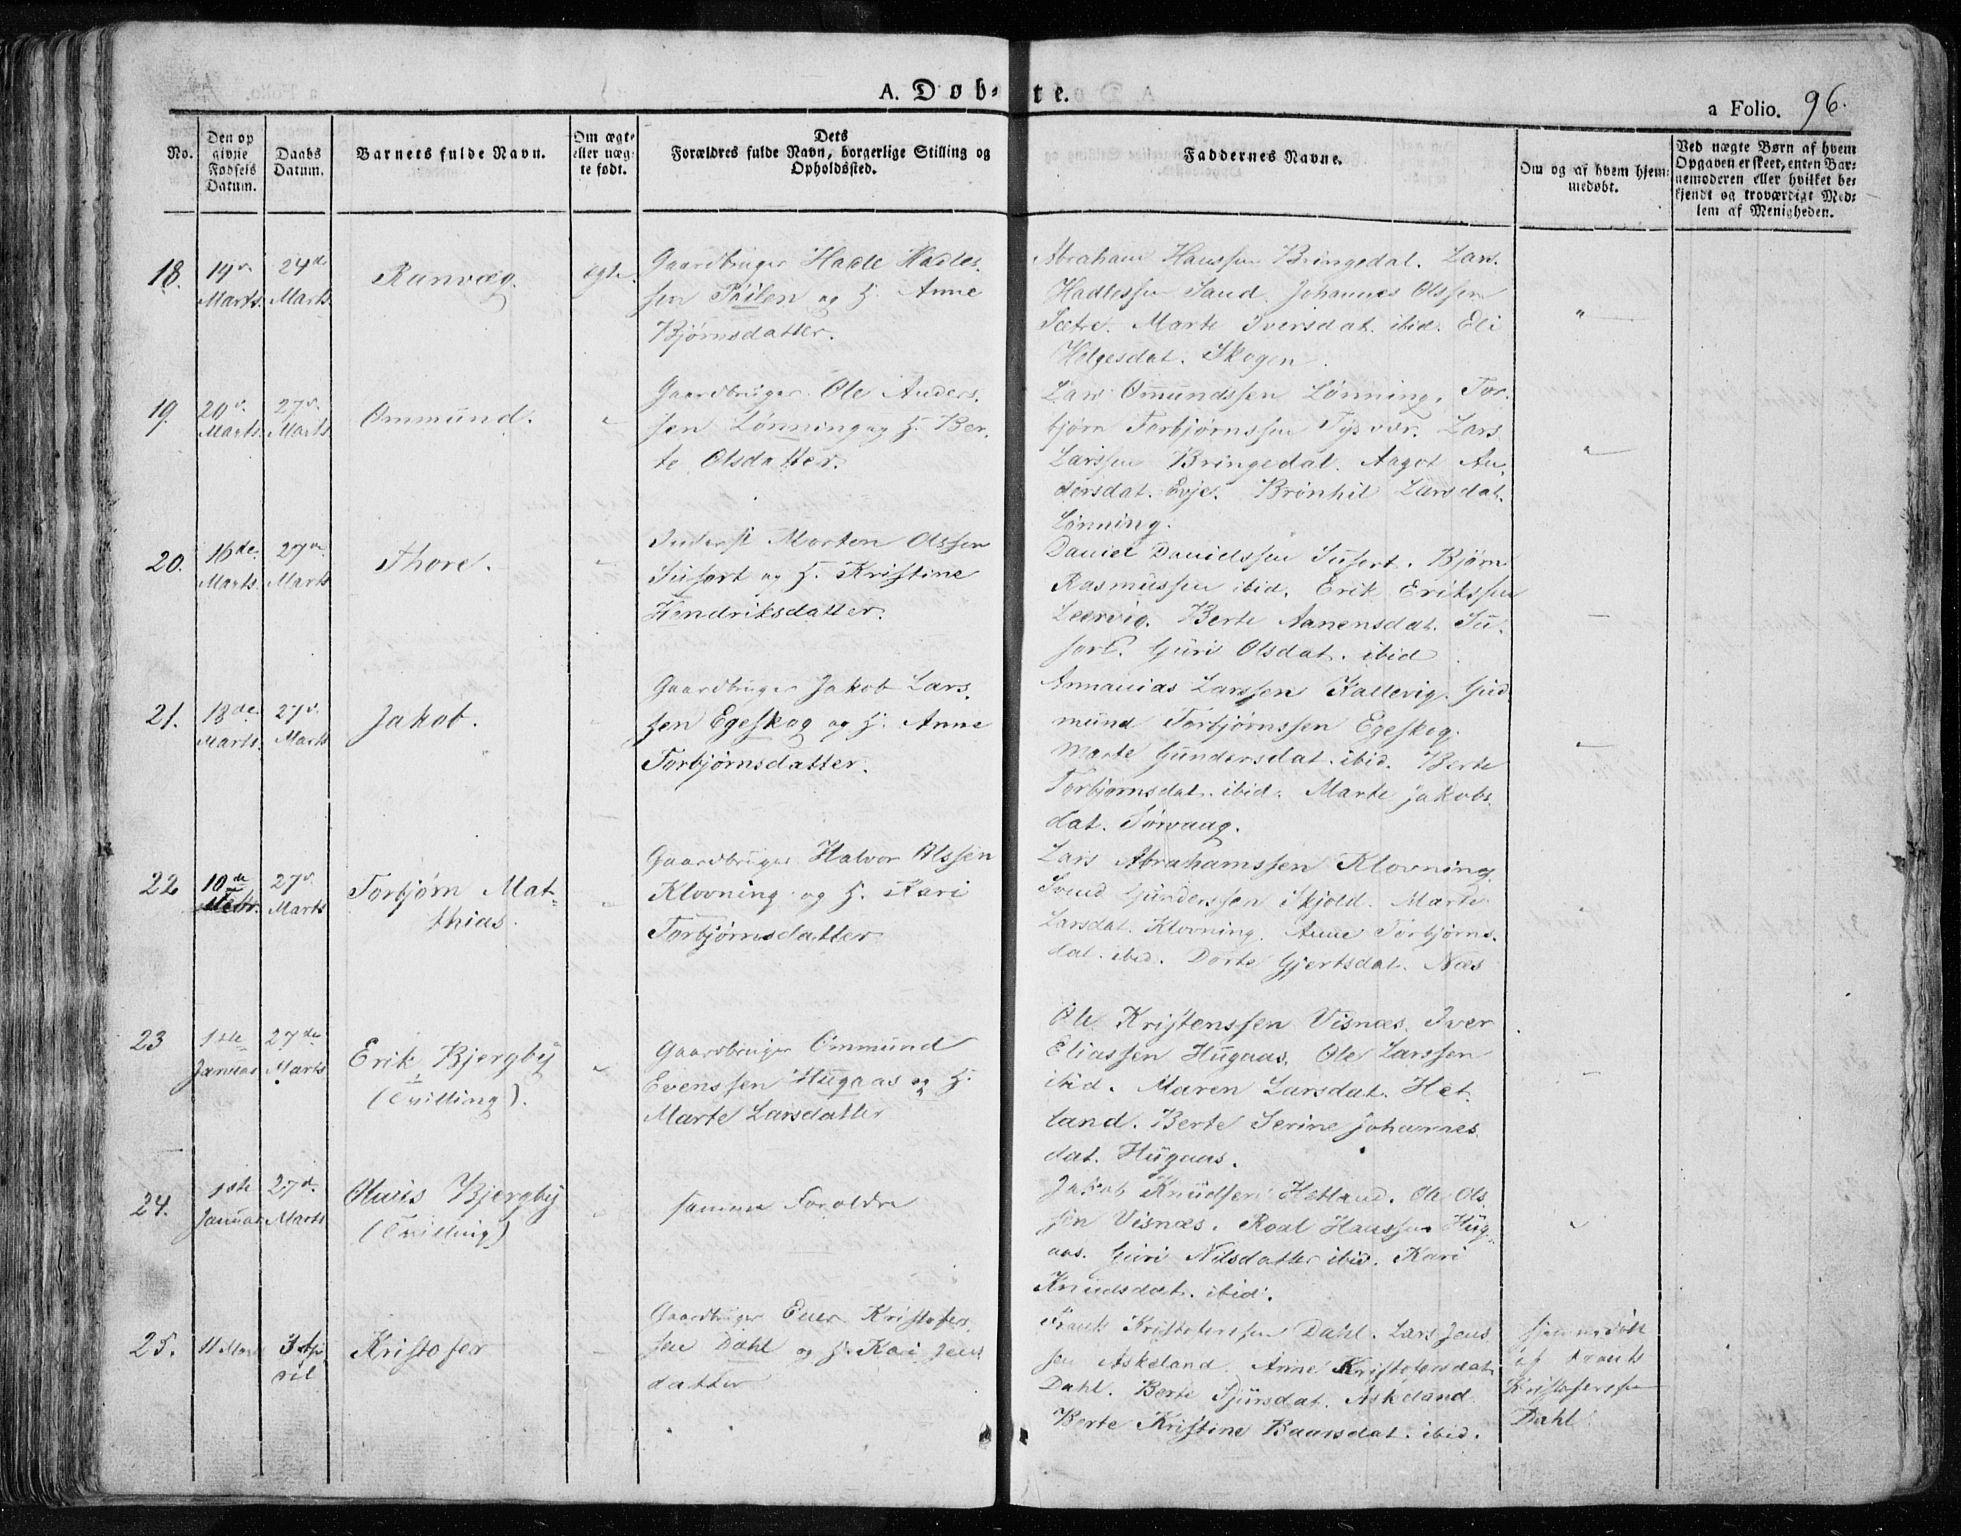 A. Døb- te.
a Folio. 96.
No.
Den op
givne
Fødsels
Datum.
Daabs
Datum.
Barnets fulde Navn.
Om ægte
eller uæg-
te født.
Dets
Forældres fulde Navn, borgerlige Stilling og
Opholdssted.
Faddernes Navne.
Om og af hvem hjem-
medøbt.
Ved uægte Børn af hvem
Opgaven er skeet, enten Bar-
nemoderen eller hvilket be-
kjendt og troværdigt Med-
lem af Menigheden.
18.
19de
Marts.
24de
Marts
Ranvæg.
ægte.
Gaardbruger Hadle Hadles-
sen og H. Anne
Bjørnsdatter.
Abraham Hanssen Bringedal. Lars
Hadlessen Sand. Johannes Olssen
Sætre. Marte Iversdat. ibid. Eli
Helgesdat. Skogen.
19.
20de
Marts.
27de
Marts
Ommund.
Gaardbruger Ole Anders-
sen Lønning og H. Ber-
te Olsdatter.
Lars Omundssen Lønning. Tor-
bjørn Torbjørnssen Tysvær. Lars
Larssen Bringedal. Aagot An-
dersdat. Evje. Brønhil Larsdat.
Lønning.
20.
16de
Marts
27de
Marts
Thore.
Inderst Morten Olssen
Susort og H. Kristine
Hendriksdatter.
Daniel Danielssen Susort. Bjørn
Rasmussen ibid. Erik Erikssen
Leervig. Berte Aanensdat. Su-
sort. Guri Olsdat. ibid.
21.
13de
Marts.
27de
Marts
Jakob.
Gaardbruger Jakob Lars-
sen Egeskog og H. Anne
Torbjørnsdatter.
Annanias Larssen Kallevig. Gud-
mund Torbjørnssen Egeskog.
Marte Gundersdat. ibid. Berte
Torbjørnsdat. ibid. Marte Jakobs-
dat. Sørvaag.
22
10de
Febr.
27de
Marts
Torbjørn Mat-
thias.
Gaardbruger Halvor Olssen
Klovning og H. Kari
Torbjørnsdatter
Lars Abrahamssen Klovning.
Svend Gunderssen Skjold. Marte
Larsdat. Klovning. Anne Torbjørns-
dat. ibid. Dorte Gjertsdat. Næs
23
1ste
Januar
27de
Marts
Erik Bjergby
(Tvilling).
Gaardbruger Ommund
Evenssen Hugaas og H.
Marte Larsdatter
Ole Kristenssen Visnæs. Iver
Eliassen Hugaas. Ole Larssen
ibid. Maren Larsdat. Het-
land. Berte Serine Johannes-
dat. Hugaas.
24.
1ste
Januar
27de
Marts
Olaus Bjergby
(Tvilling)
samme Forældre
Jakob Knudsen Hetland. Ole Ols-
sen Visnæs. Roal Hanssen Hug-
aas. Guri Nilsdatter ibid. Kari
Knudsdat. ibid.
25.
11 Marts
3 Ap-
ril
Kristofer
Gaardbruger Even Kristofers-
sen Dahl og H. Kari Jens-
datter
Trauls Kristoferssen Dahl. Lars Jens-
sen Askeland. Anne Kristofersdat.
Dahl. Berte Sjursdat. Askeland
Berte Kristine Baarsdat. ibid.
hjemmedøbt
af
Kristoferssen
Dahl.